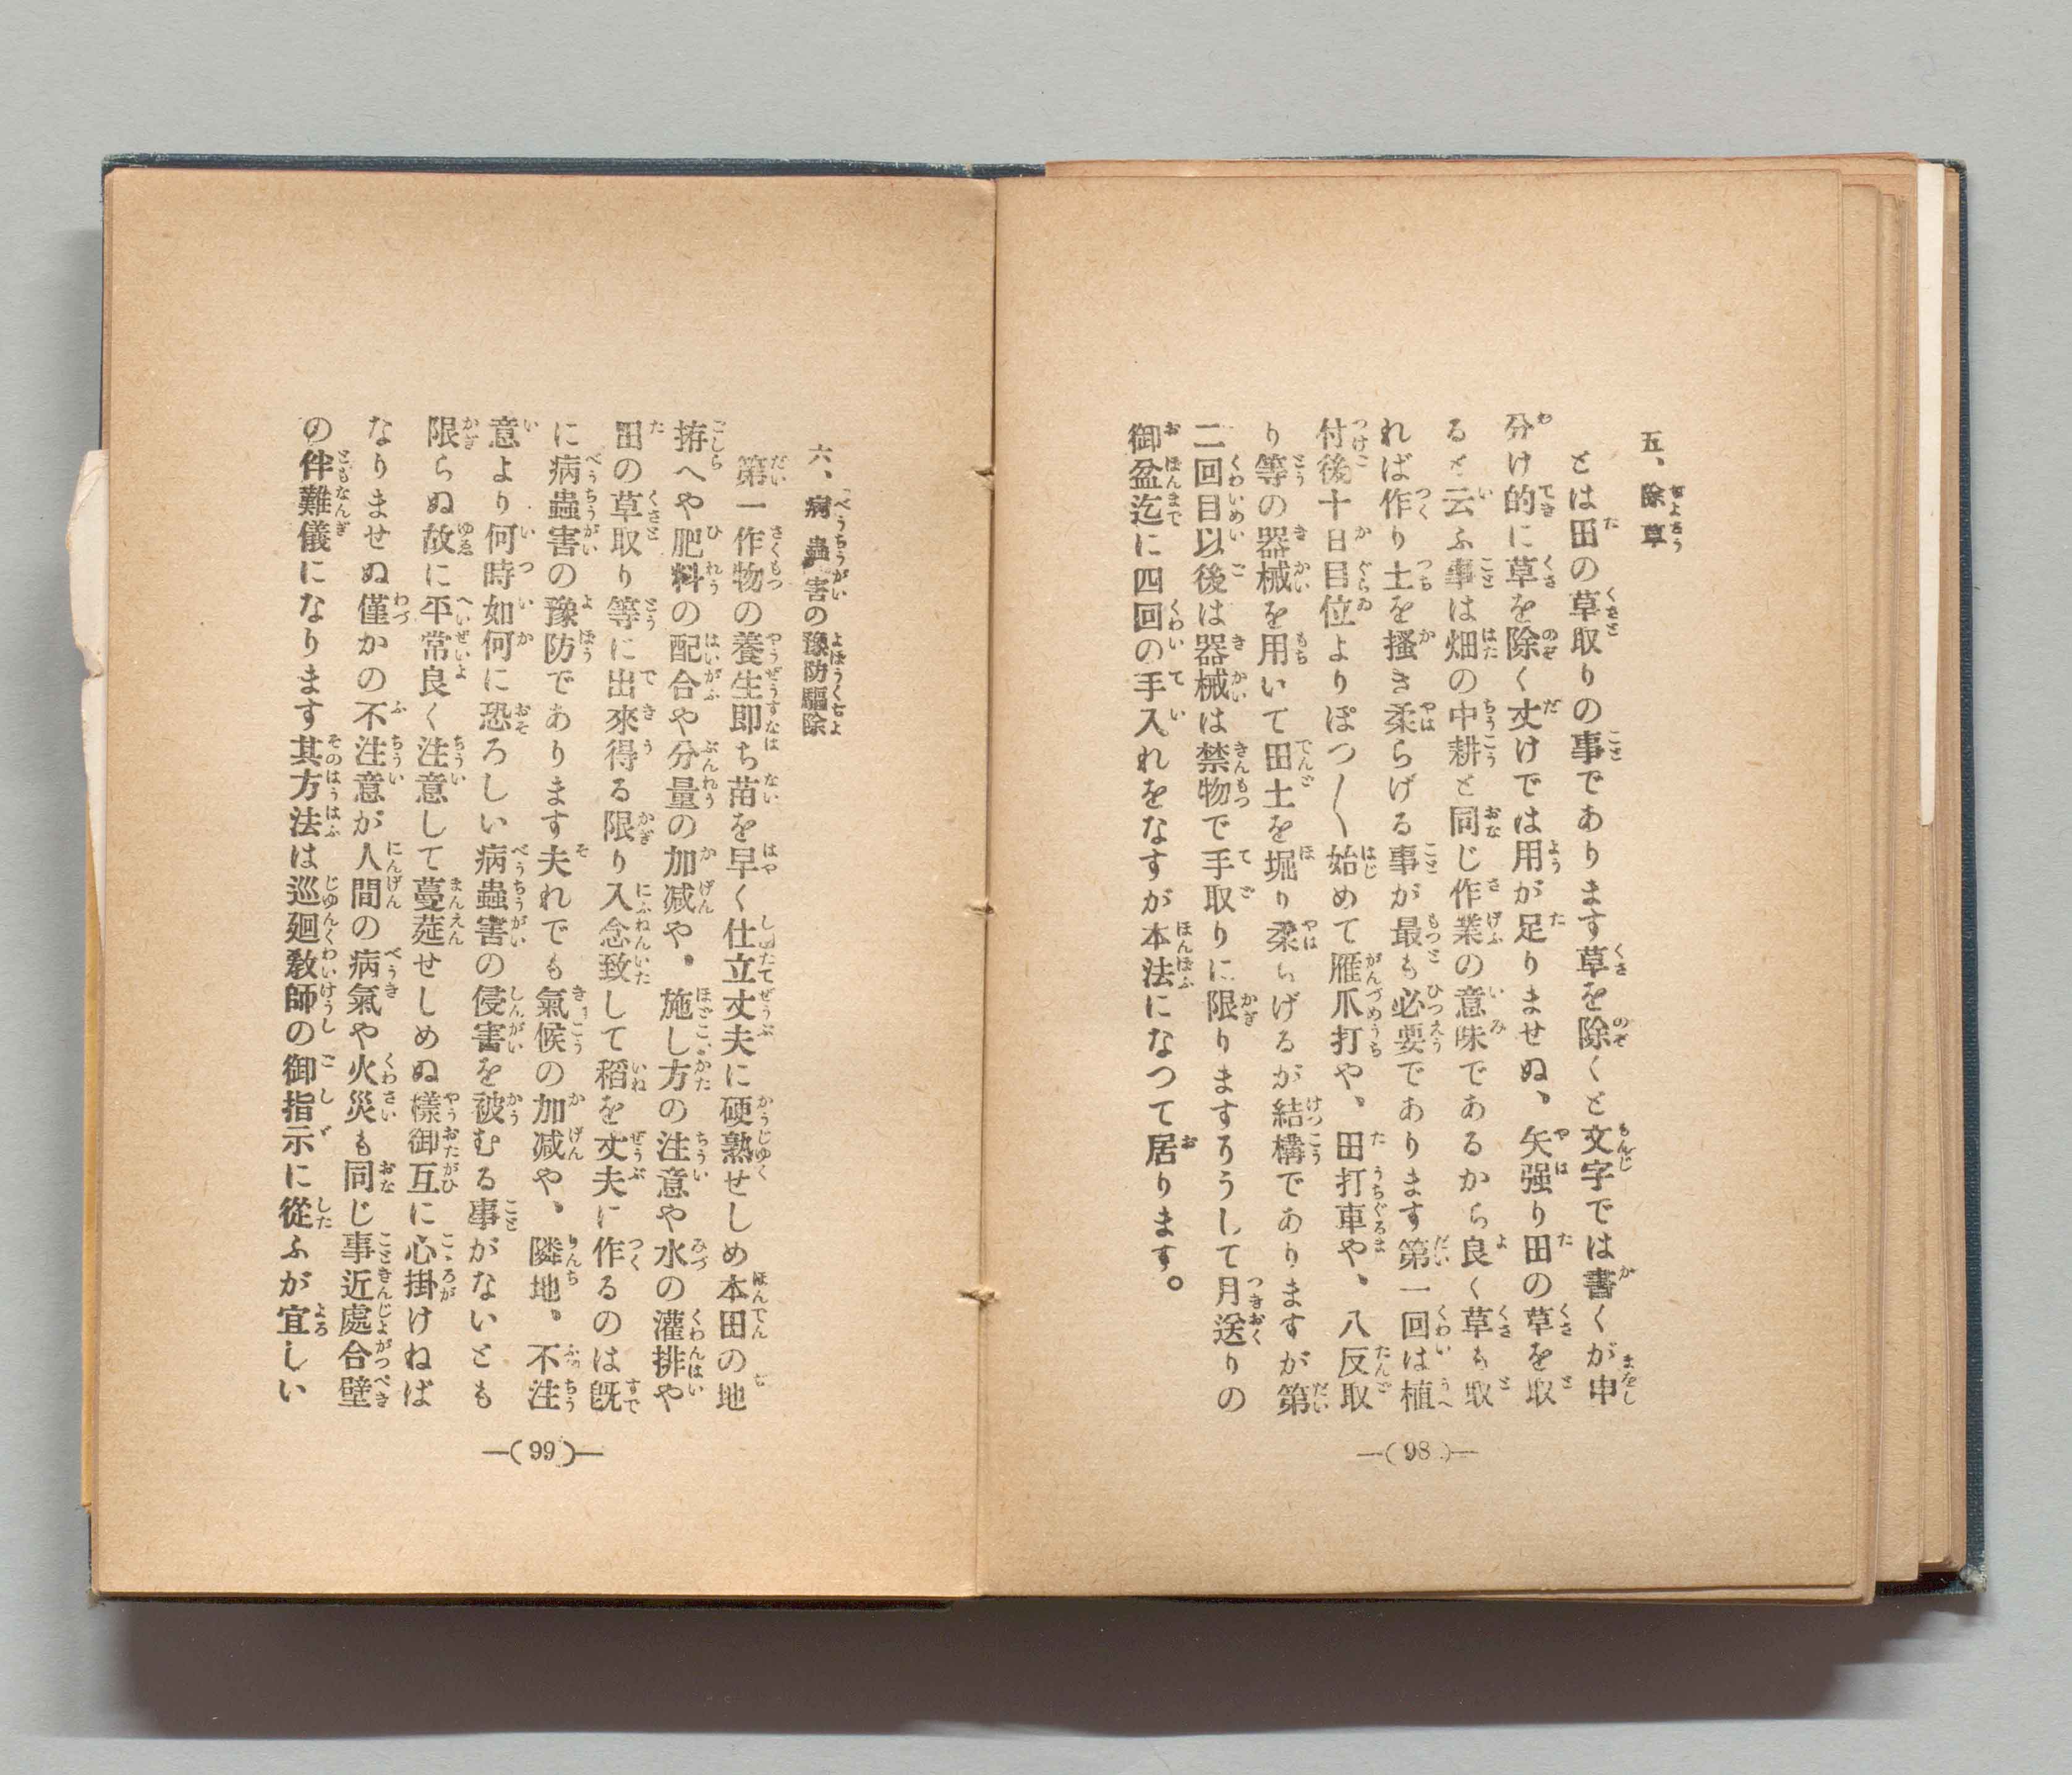 五、除草
とは田の草取りの事であります草を除くと文字では書くが申
分け的に草を除く丈けでは用が足りませぬ、矢强り田の草を取
ると云ふ事は畑の中耕と同じ作業の意味であるから良く草も取
れば作り土を搔き柔らげる事が最も必要であります第一回は植
付後十日目位よりぽつ〳〵始めて雁爪打や、田打車や、八反取
り等の器械を用いて田土を堀り柔らげるが結構でありますが第
二回目以後は器械は禁物で手取りに限りますろうして月送りの
御盆迄に四回の手入れをなすが本法になつて居ります。
—(98)—
六、病蟲害の豫防驅除
第一作物の養生卽ち苗を早く仕立丈夫に硬熟せしめ本田の地
拵へや肥料の配合や分量の加減や、施し方の注意や水の灌排や
田の草取り等に出來得る限り入念致して稻を丈夫に作るのは旣
に病蟲害の豫防であります夫れでも氣候の加減や、隣地、不注
意より何時如何に恐ろしい病蟲害の侵害を被むる事がないとも
限らぬ故に平常良く注意して蔓莚せしめぬ樣御互に心掛けねば
なりませぬ僅かの不注意が人間の病氣や火災も同じ事近處合壁
の伴難儀になります其方法は巡廻敎師の御指示に從ふが宜しい
—(99)—